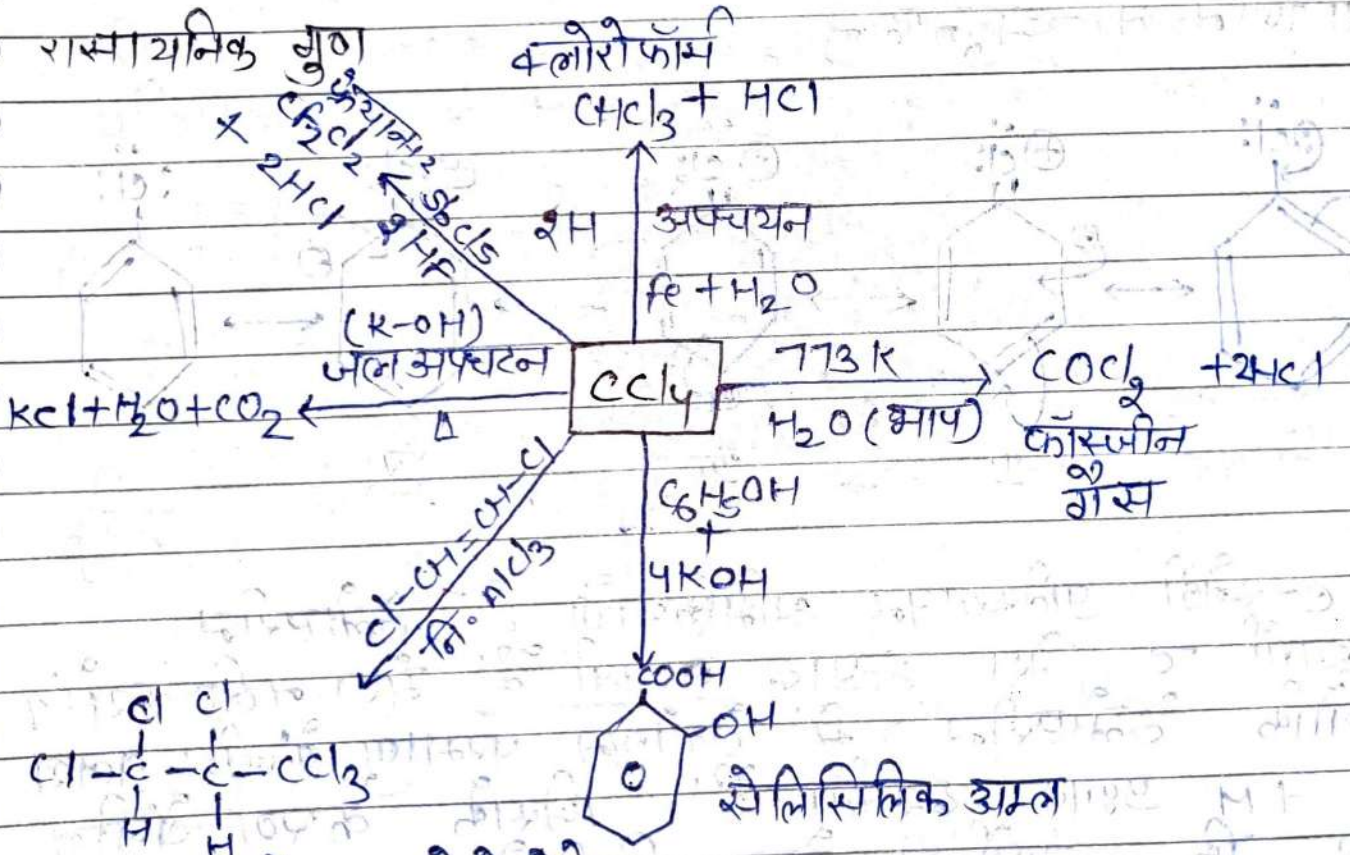 रासायनिक गुण
क्लोरोफॉर्म
CHCl3 + HCl
फ्रेयॉन-12
CF2Cl2
+
2HCl
SbCl5
2HF
2H अपचयन
Fe + H2O
(K-OH)
जल अपघटन
Δ
KCl+H2O+CO2
CCl4
773K
H2O (भाप)
COCl2 +2HCl
फॉस्जीन
गैस
Cl-CH=CH-Cl
नि. AlCl3
C6H5OH
+
4KOH
Cl Cl
Cl-C-C-CCl3
H H
COOH
OH
सेलिसिलिक अम्ल